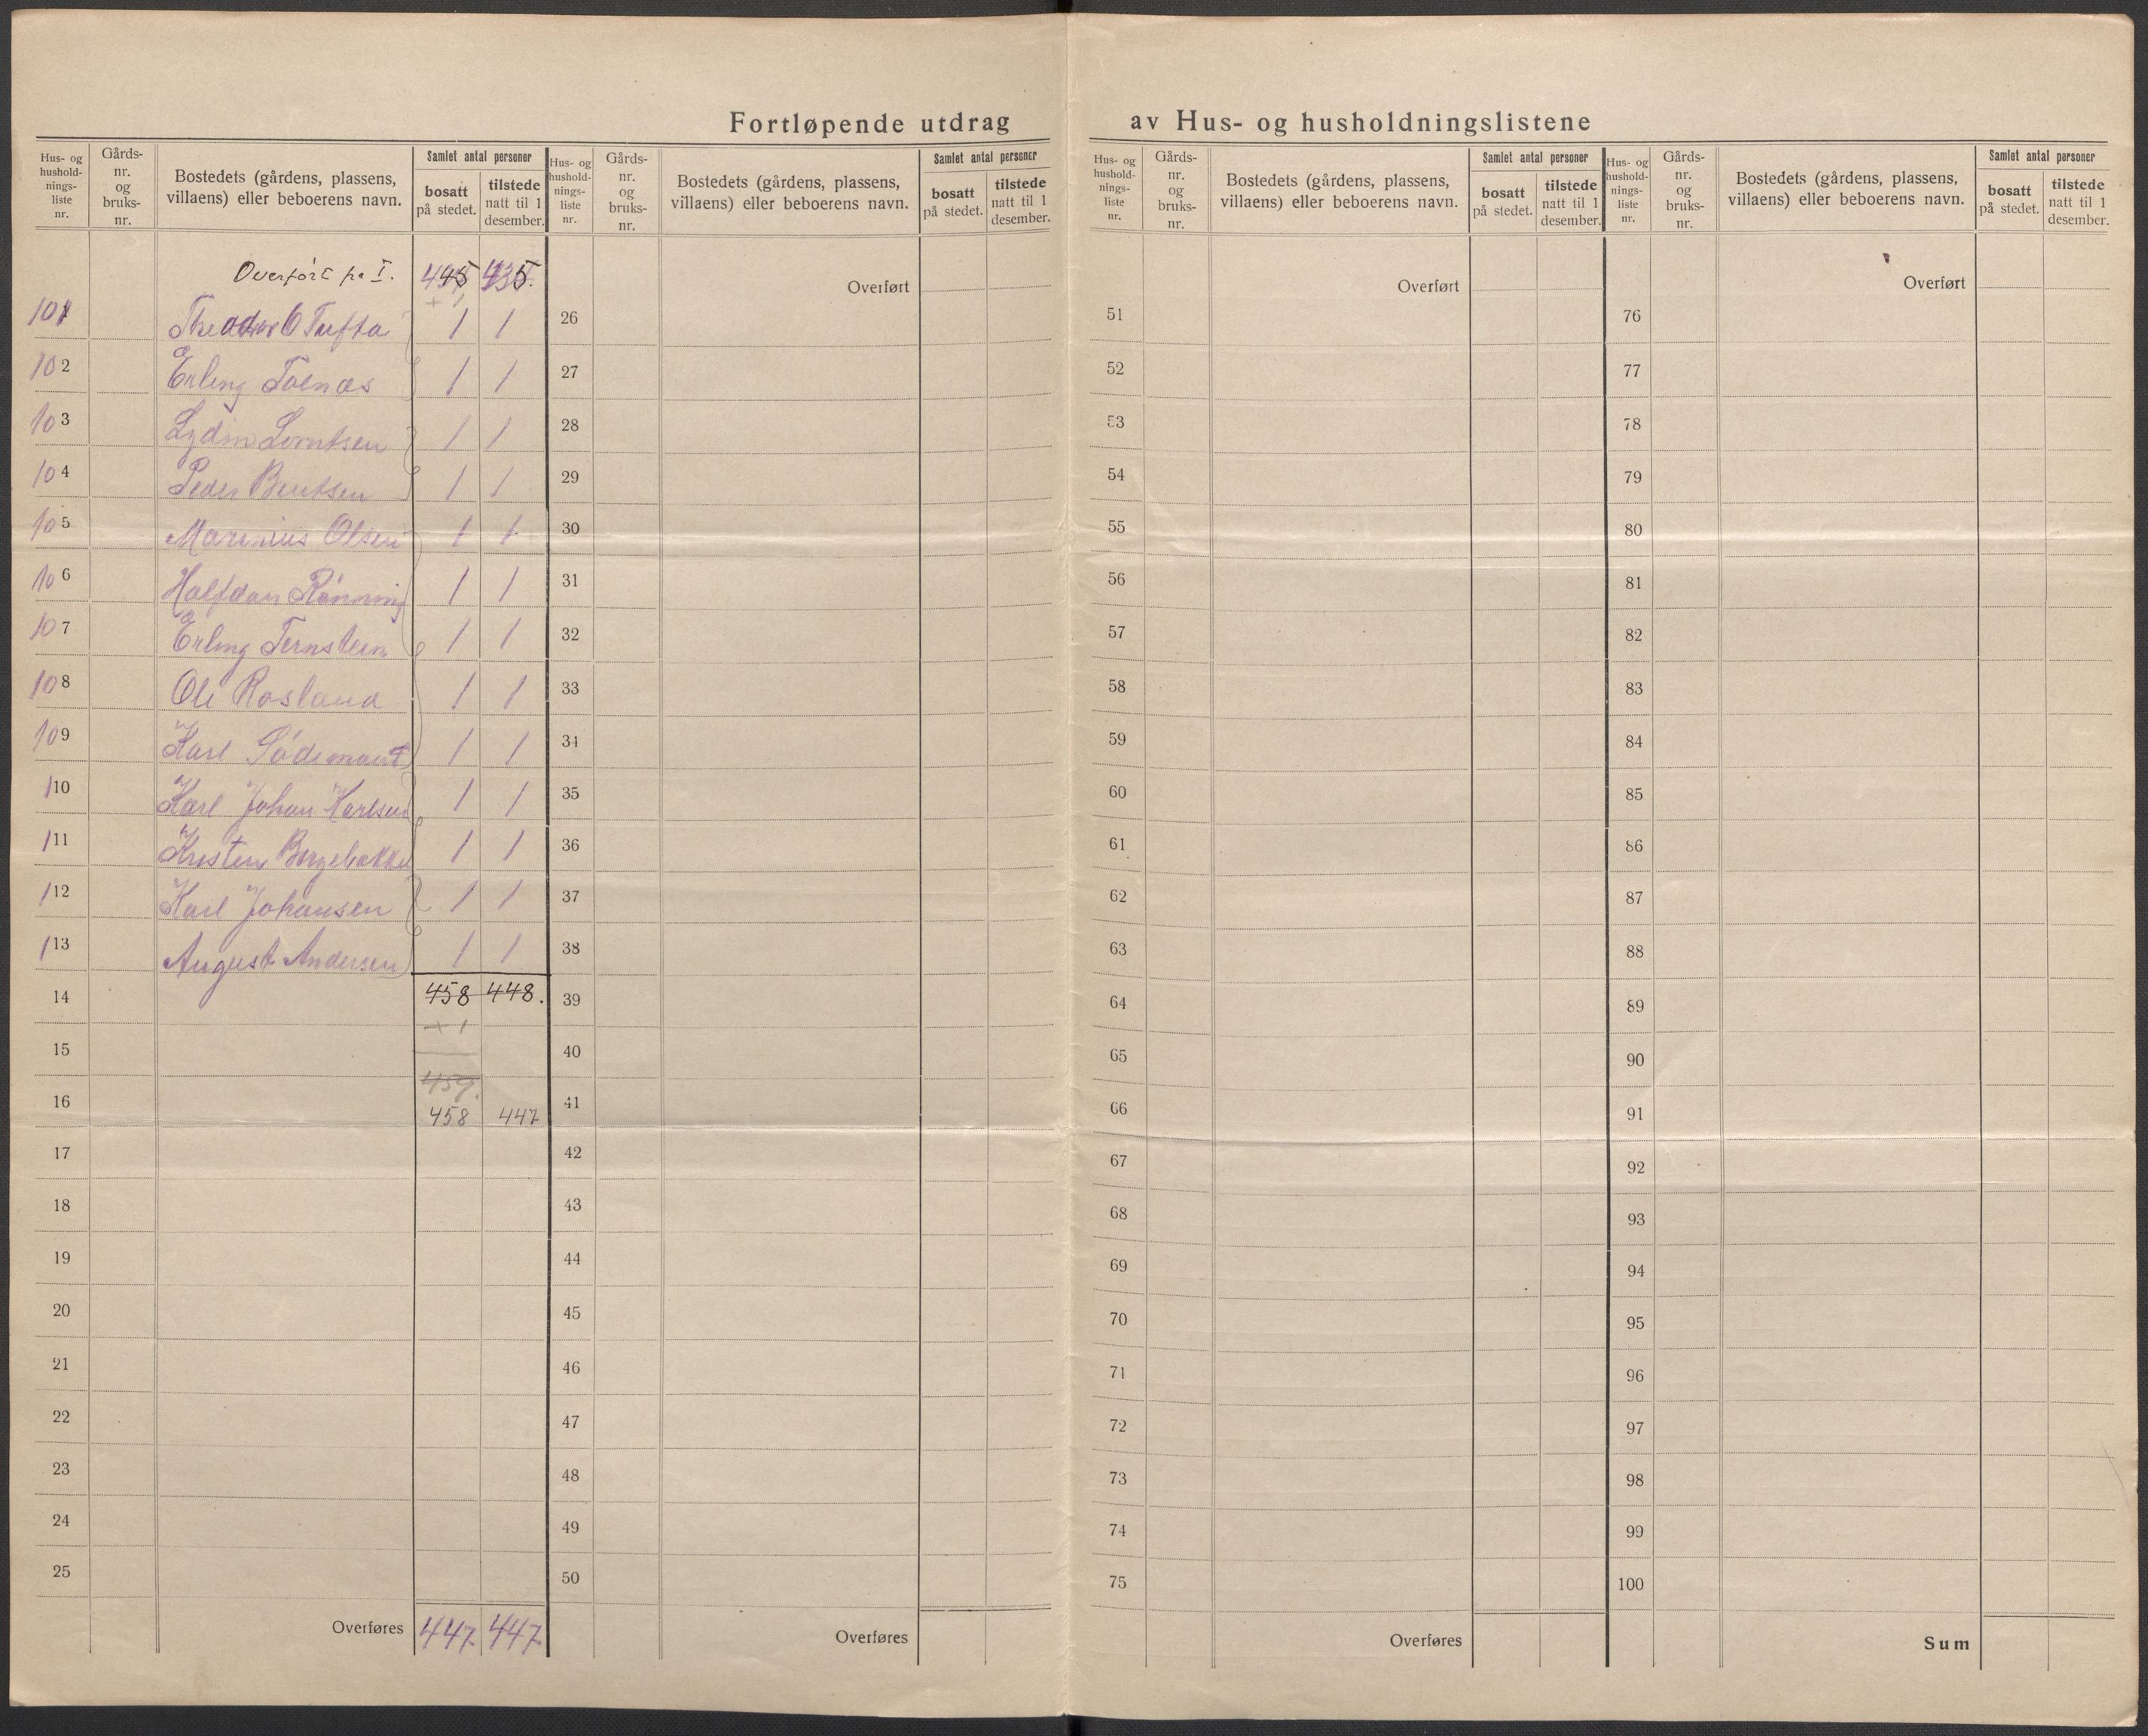 Fortløpende utdrag av Hus- og husholdningslistene
Hus- og hushold- nings- liste nr.
Gårds- nr. og bruks- nr.
Bostedets (gårdens, plassens, villaens) eller beboerens navn.
Samlet antal personer
bosatt på stedet.
tilstede natt til 1 desember.
Overført fra I. 445 435.
101 Theodor O Tufta 1 1
102 Erling Toenæs 1 1
103 Lorntsen 1 1
104 Peder Bentsen 1 1
105 Marinius Olsen 1 1
106 Halfdan Rønning 1 1
107 Erling Fernstein 1 1
108 Ole Rosland 1 1
109 Karl 1 1
110 Karl Johan Karlsen 1 1
111 Kristen 1 1
112 Karl Johansen 1 1
113 August Andersen 1 1
14 458 448.
+ 1
15
459.
16 458 447
17
18
19
20
21
22
23
24
25
Overføres 447 447
Hus- og hushold- nings- liste nr.
Gårds- nr. og bruks- nr.
Bostedets (gårdens, plassens, villaens) eller beboerens navn.
Samlet antal personer
bosatt på stedet.
tilstede natt til 1 desember.
Overført
26
27
28
29
30
31
32
33
34
35
36
37
38
39
40
41
42
43
44
45
46
47
48
49
50
Overføres
Hus- og hushold- nings- liste nr.
Gårds- nr. og bruks- nr.
Bostedets (gårdens, plassens, villaens) eller beboerens navn.
Samlet antal personer
bosatt på stedet.
tilstede natt til 1 desember.
Overført
51
52
53
54
55
56
57
58
59
60
61
62
63
64
65
66
67
68
69
70
71
72
73
74
75
Overføres
Hus- og hushold- nings- liste nr.
Gårds- nr. og bruks- nr.
Bostedets (gårdens, plassens, villaens) eller beboerens navn.
Samlet antal personer
bosatt på stedet.
tilstede natt til 1 desember.
Overført
76
77
78
79
80
81
82
83
84
85
86
87
88
89
90
91
92
93
94
95
96
97
98
99
100
Sum